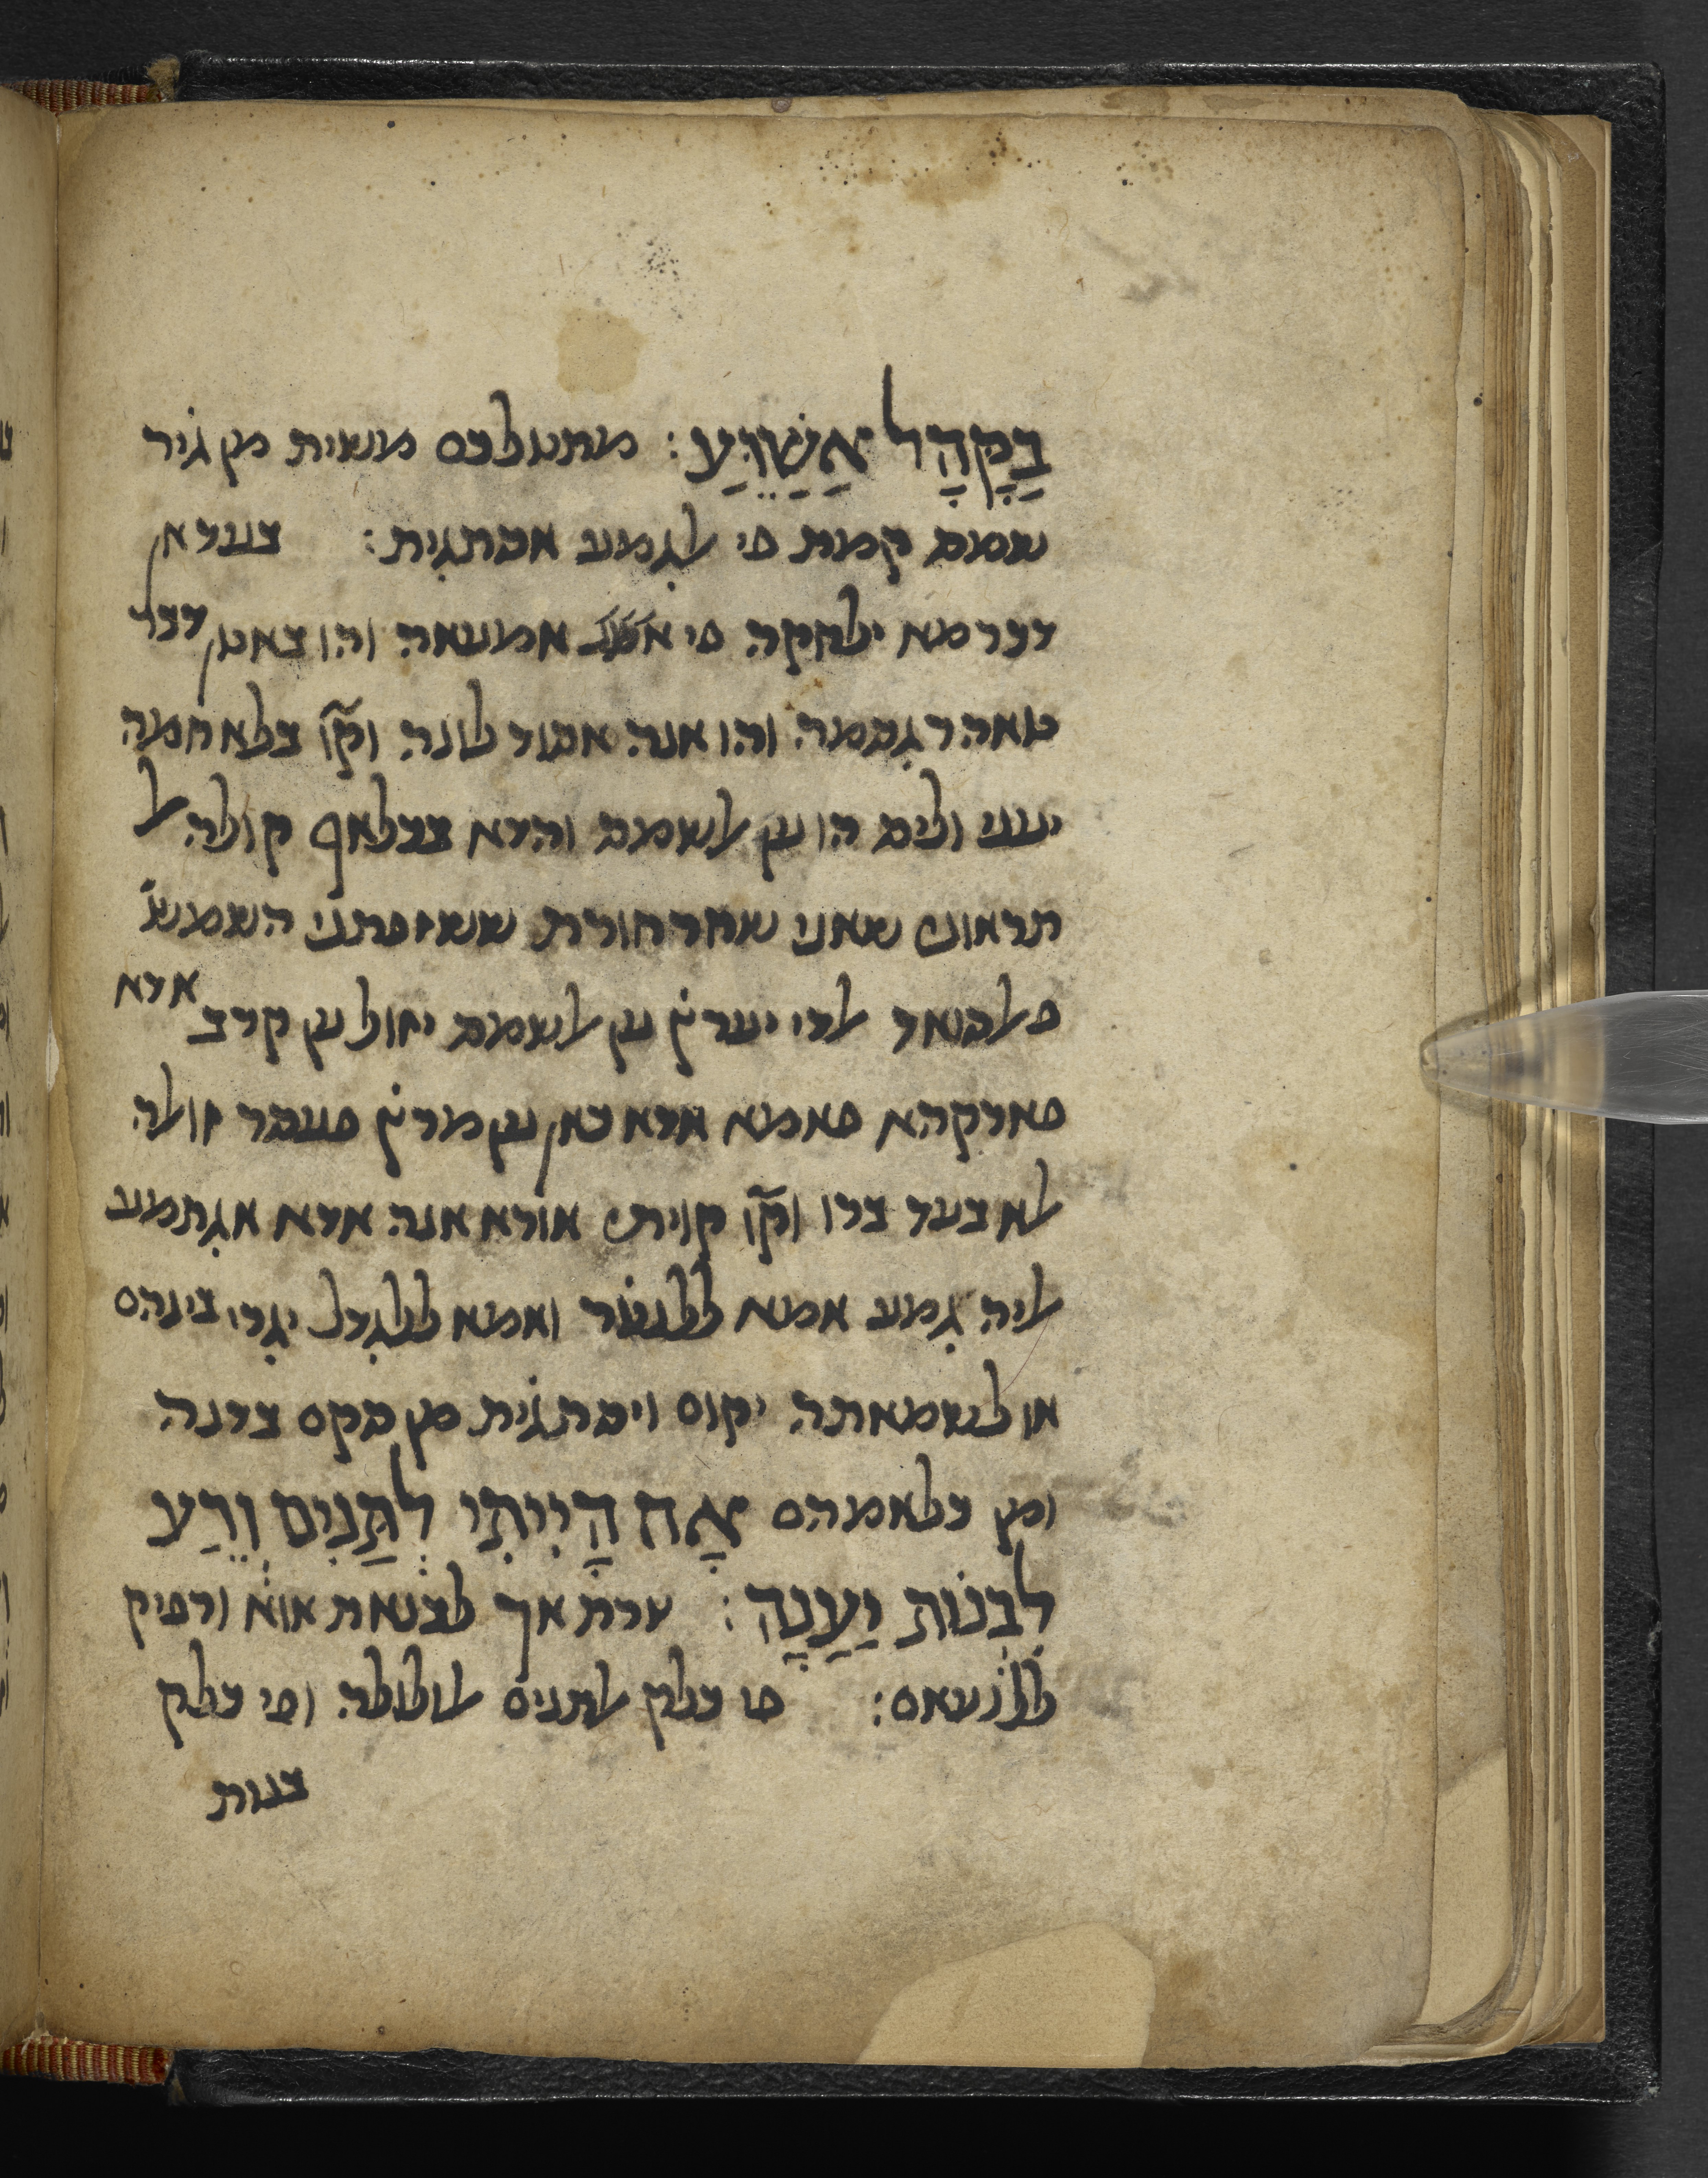 בַקָּהָל אֲשַׁוֵּעַ: מתטלכס משית מן גיר
שמס קמת פי לגמע אסתגית: בעדאן
דכר מא ילחקה פי אמעאה והו באטן דכר
טאהר גסמה והו אנה אסוד לונה וקו׳ בלא חמה
יעני וליס הו ען לשמס והדא בכלאף קולה ל
תראוני שאני שחרחורת ששזפתני השמש
פלסואד לדי יערץ׳ ען לשמס יזול ען קרב אדא
פארקהא פאמא אדא כאן ען מרץ׳ פעסר זולה
לא בעד ברו וקו׳ קויתי אורא אנה אדא אגתמע
ליה גמע אמא ללנט׳ר ואמא ללגדל יגרי בינהם
או לשמאתה יקום ויסתגית מן סקם בדנה
ומן כלאמהם אָח הָיִיתִי לְתַנִּים וְרֵעַ
לִבְנוֹת יַעֲנָה: צרת אך לבנאת אוא ורפיק
ללנעאם: פי כלק לתנים לולולה ופי כלק
בנות